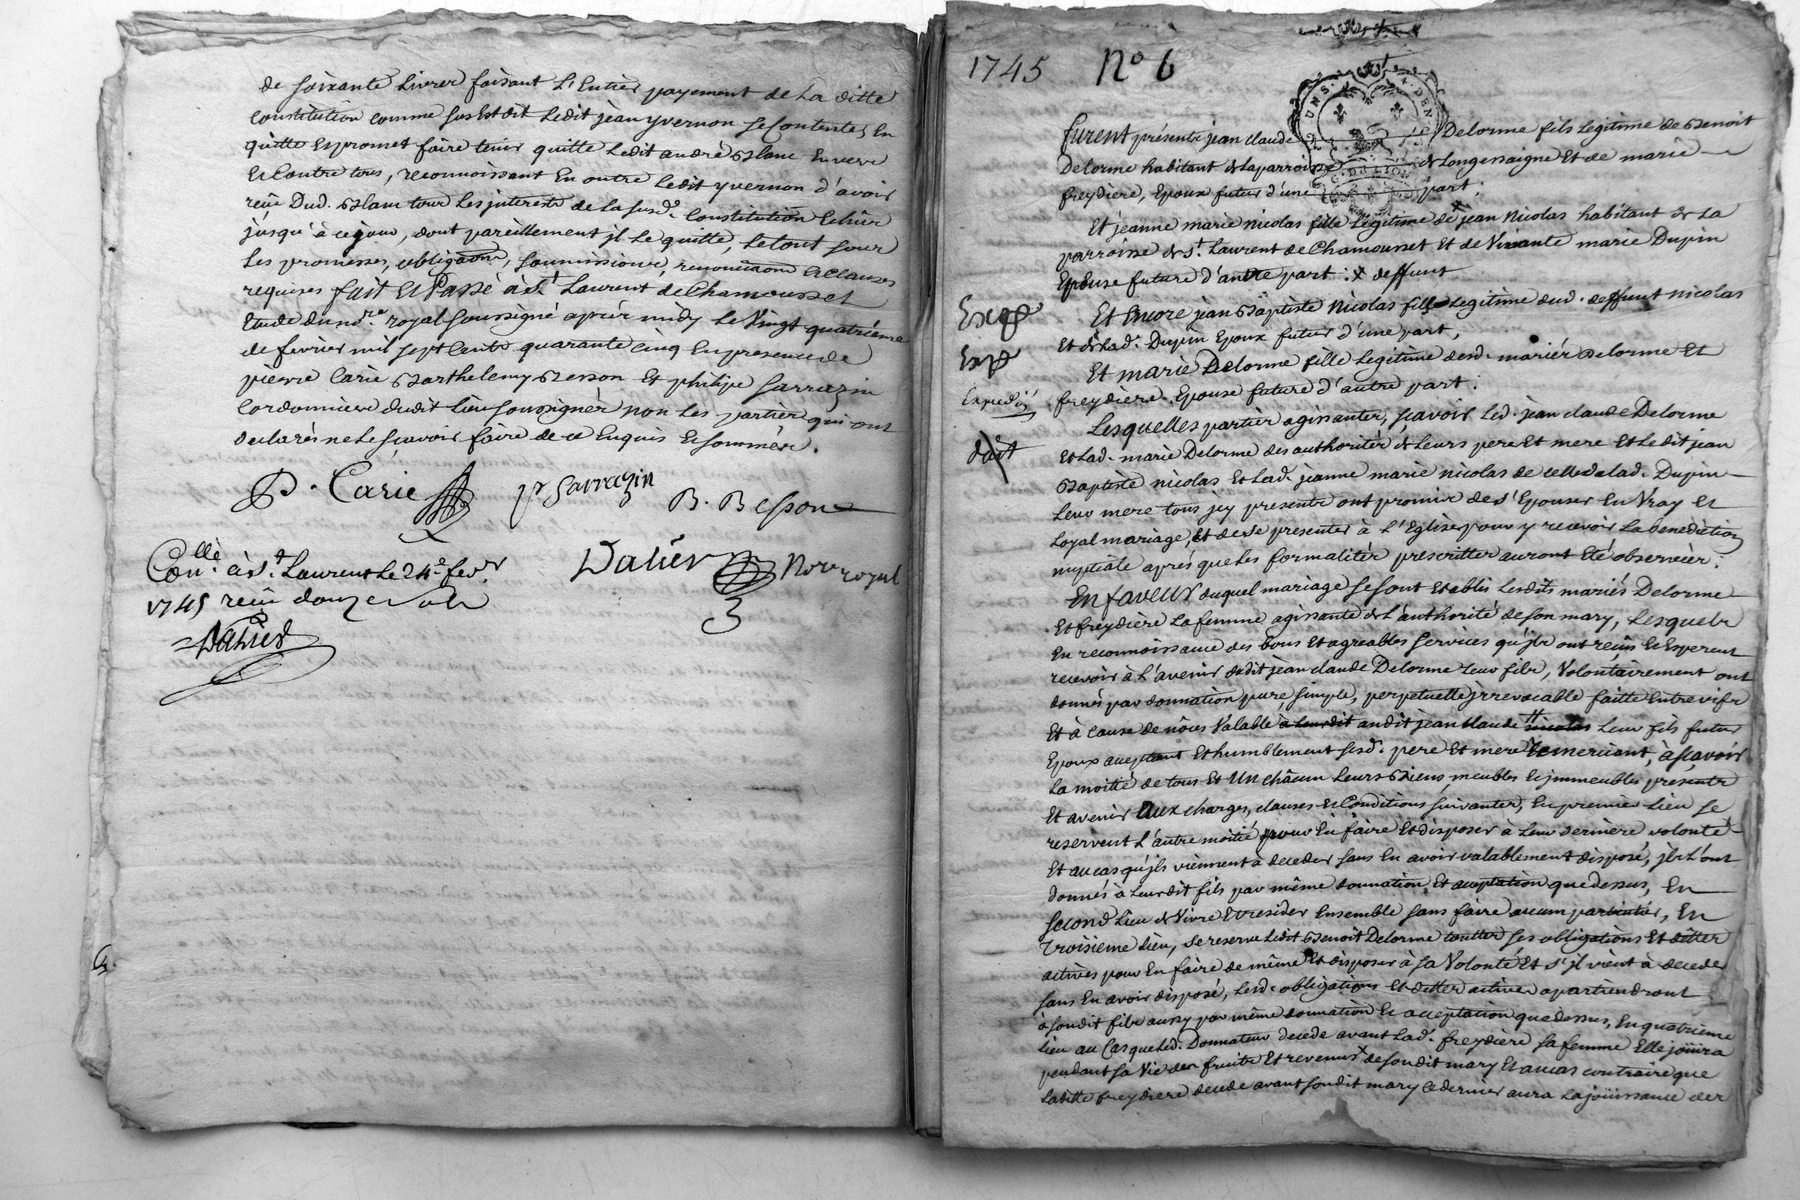 de soixante livres faisant l'entier payement de la ditte
constitution comme sus est dit ledit jean yvernon se contente, en
quitte et promet faire tenir quitte ledit andré Blanc envers
et contre tous, reconnoissant en outre ledit yvernon d'avoir
reçu dud. Blanc tous les interests de la susd.e constitution echus
jusqu'à ce jour, dont pareillement il le quitte, le tout sous
les promesses, obligaõns, soumissions, renonciaõns et clauses
requises fait et Passé à S.t Laurent de Chamousset
Etude du no.re royal soussigné après midy le Vingt quatrième
de fevrier mil sept cents quarante cinq en presence de
pierre Carie Barthelemy Besson et philipe sarrazin
Cordonniers dudit lieu soussignés non les parties qui ont
declarés ne le sçavoir faire de ce enquis et sommés.
P. Carie p sarrazin B. Besson
Con.llé à S.t Laurent le 24.e fevr.
1745 reçu douze sols
Dalier
Dalier No.re royal
1745 N.o 6
furent présents jean claude Delorme fils legitime de Benoit
Delorme habitant de la parroisse de Longessaigne et de marie
freydiere, Epoux futur d'une part.
Et jeanne marie nicolas fille legitime de x jean Nicolas habitant de la
parroisse de S.t Laurent de Chamousset et de Vivante marie Dupin
Epouse future d'autre part : x deffunt
Exp
Et Encore jean Baptiste Nicolas fils legitime dud. deffunt nicolas
Et de lad. Dupin Epoux futur d'une part,
Exp
Et marie Delorme fille legitime desd. mariés Delorme et
Expedié
freydiere. Epouse future d'autre part :
Lesquelles parties agissantes, sçavoir led. jean claude Delorme
doit
et lad. marie Delorme des authorités de leurs pere et mere et ledit jean
Baptiste nicolas et lad. jeanne marie nicolas de celle de lad. Dupin
Leur mere tous icy presents ont promis de s'Epouser en Vray et
Loyal mariage, et de se presenter à l'Eglise pour y recevoir la benediction
nuptiale après que les formalités prescrittes auront été observées.
En faveur duquel mariage se sont etablis lesdits mariés Delorme
Et freydiere la femme agissante de l'authorité de son mary, Lesquels
En reconnoissance des bons et agreables services qu'ils ont reçus et Esperent
recevoir à l'avenir dudit jean claude Delorme leur fils, Volontairement ont
donnés par donnation pure, simple, perpetuelle, irrevocable faitte entre vifs
Et à cause de nôces Valable à leur dit audit jean claude nicolas leur fils futur
Epoux acceptant et humblement sesd. pere et mere remerciant, à sçavoir
La moitié de tous et Un châcun leurs Biens, meubles et immeubles présents
Et avenir aux charges, clauses et Conditions suivantes, en premier Lieu se
reservent l'autre moitié pour En faire et disposer à leur dernière volonté
Et au cas qu'ils viennent à deceder sans En avoir valablement disposé, ils l'ont
donnés à leur dit fils par même donnation et acceptation que dessus, En
second Lieu de Vivre et resider Ensemble sans faire aucun particulier, En
Troisieme Lieu, se reserve ledit Benoit Delorme touttes ses obligations et dettes
actives pour En faire de même et disposer à sa Volonté et s'il vient à deceder
sans En avoir disposé, lesd. obligations et dettes actives apartiendront
à son dit fils aussy par même donnation et acceptation que dessus, En quatrieme
lieu au Cas que led. Donnateur decede avant lad.e freydiere sa femme Elle jouira
pendant sa Vie des fruits Et revenus x de son dit mary Et au cas contraire que
Laditte freydiere decede avant son dit mary ce dernier aura la jouissance des